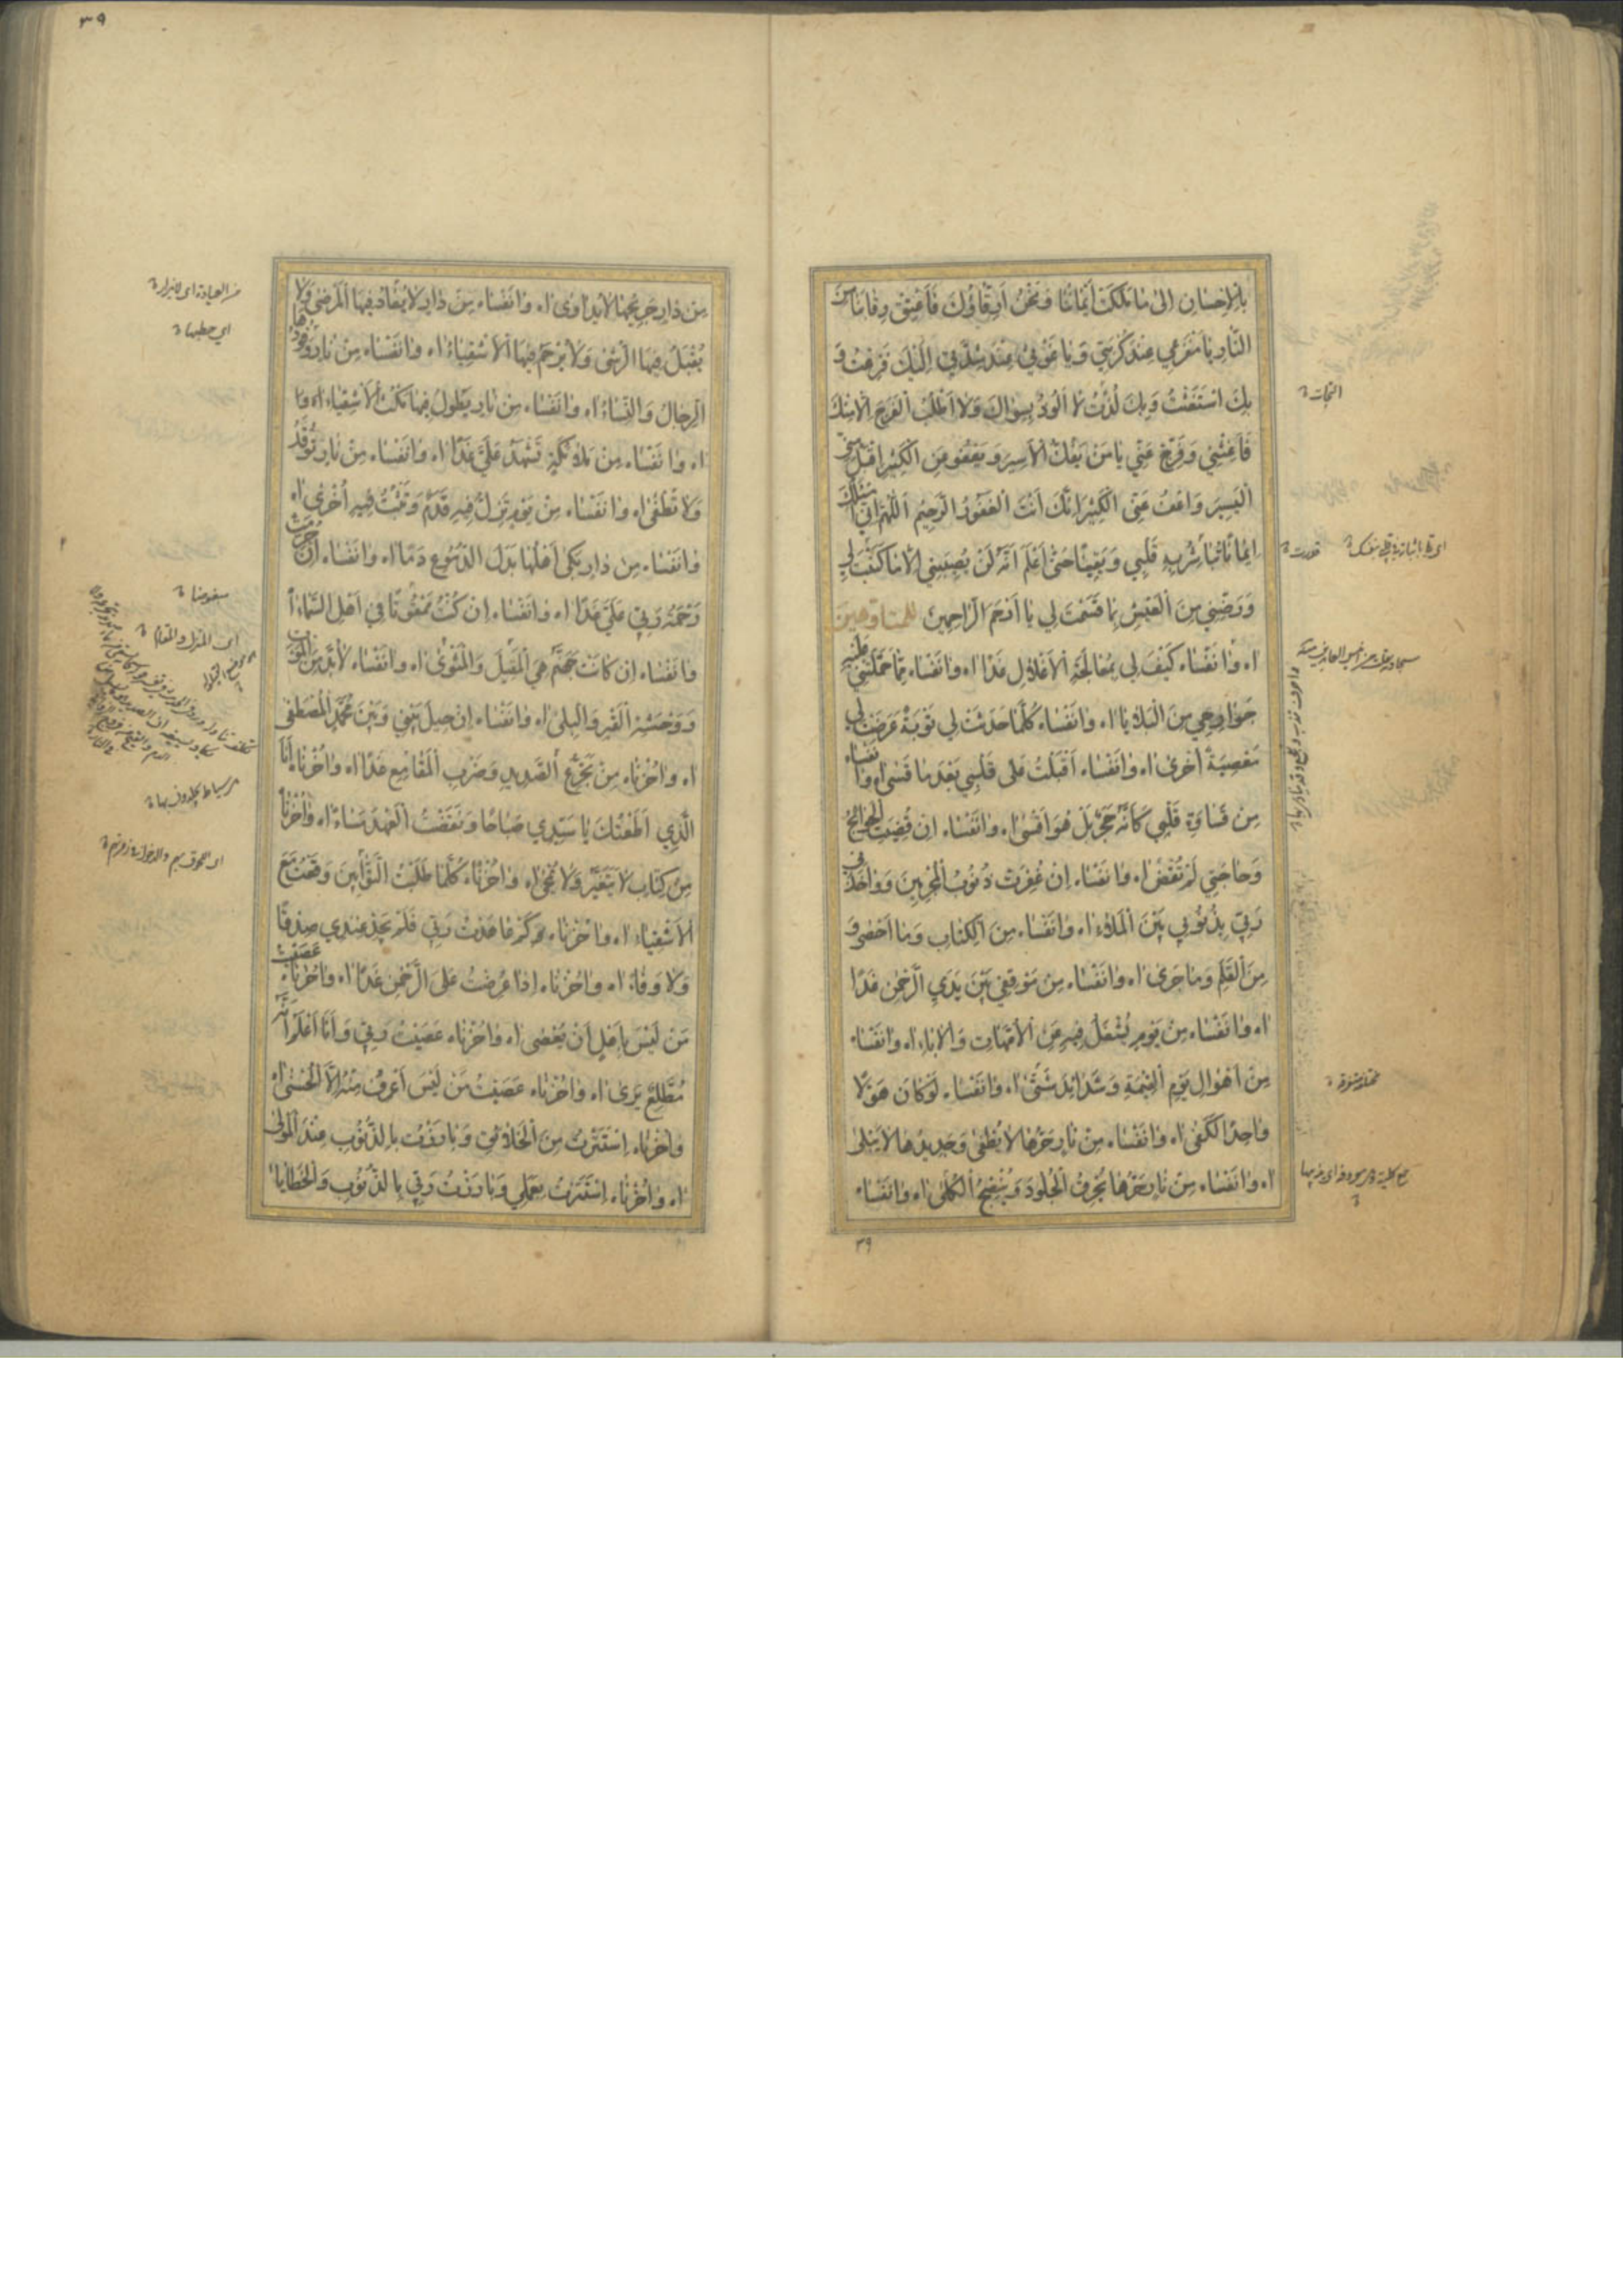 بِالْاِحْسَانِ اِلىٰ مَا مَلَكَتْ اَيْمَانُنَا وَنَحْنُ اَرِقَّاؤُكَ فَاَعْتِقْ رِقَابَنَا مِنَ
النَّارِ يَا مَفْزَعِي عِنْدَ كُرْبَتِي وَيَا غَوْثِي عِنْدَ شِدَّتِي اِلَيْكَ فَزِعْتُ وَ
بِكَ اسْتَغَثْتُ وَبِكَ لُذْتُ لَا اَلُوذُ بِسِوَاكَ وَلَا اَطْلُبُ الْفَرَجَ اِلَّا مِنْكَ
فَاَغِثْنِي وَفَرِّجْ عَنِّي يَا مَنْ يَفُكُّ الْاَسِيرَ وَيَعْفُو عَنِ الْكَثِيرِ اقْبَلْ مِنِّي
الْيَسِيرَ وَاعْفُ عَنِّي الْكَثِيرَ اِنَّكَ اَنْتَ الْغَفُورُ الرَّحِيمُ اَللّٰهُمَّ اِنِّي اَسْئَلُكَ
اِيمَانًا تُبَاشِرُ بِهِ قَلْبِي وَيَقِينًا حَتّٰى اَعْلَمَ اَنَّهُ لَنْ يُصِيبَنِي اِلَّا مَا كَتَبْتَ لِي
وَرَضِّنِي مِنَ الْعَيْشِ بِمَا قَسَمْتَ لِي يَا اَرْحَمَ الرَّاحِمِينَ
اه وَا نَفْسَاه كَيْفَ لِي بِمُعَالَجَةِ الْاَغْلَالِ غَدًا اه وَا نَفْسَاه مِمَّا حَمَلَتْنِي عَلَيْهِ
جَوَارِحِي مِنَ الْبَلَايَا اه وَا نَفْسَاه كُلَّمَا حَدَثَتْ لِي تَوْبَةٌ عَرَضَتْ لِي
مَعْصِيَةٌ اُخْرىٰ اه وَا نَفْسَاه اَقْبَلْتُ عَلىٰ قَلْبِي بَعْدَ مَا قَسىٰ اه وَا نَفْسَاه
مِنْ قَسَاوَةِ قَلْبِي كَاَنَّهُ حَجَرٌ بَلْ هُوَ اَقْسىٰ اه وَا نَفْسَاه اِنْ قُضِيَتِ الْحَوَائِجُ
وَحَاجَتِي لَمْ تُقْضَ اه وَا نَفْسَاه اِنْ غُفِرَتْ ذُنُوبُ الْمُجْرِمِينَ وَوَاخَذَنِي
رَبِّي بِذُنُوبِي بَيْنَ الْمَلَاءِ اه وَا نَفْسَاه مِنَ الْكِتَابِ وَمَا اَحْصىٰ وَ
مِنَ الْقَلَمِ وَمَا جَرىٰ اه وَا نَفْسَاه مِنْ مَوْقِفِي بَيْنَ يَدَيِ الرَّحْمٰنِ غَدًا
اه وَا نَفْسَاه مِنْ يَوْمٍ يُشْغَلُ فِيهِ عَنِ الْاُمَّهَاتِ وَالْاٰبَاءِ اه وَا نَفْسَاه
مِنْ اَهْوَالِ يَوْمِ الْقِيٰمَةِ وَشَدَائِدَ شَتّٰى اه وَا نَفْسَاه لَوْ كَانَ هَوْلًا
وَاحِدًا لَكَفىٰ اه وَا نَفْسَاه مِنْ نَارٍ حَرُّهَا لَا يُطْفىٰ وَجَدِيدُهَا لَا يَبْلىٰ
اه وَا نَفْسَاه مِنْ نَارٍ حَرُّهَا تُحْرِقُ الْجُلُودَ وَيُنْضِجُ الْكُلىٰ اه وَا نَفْسَاه
٣٩
النجات
قدرت
٣٩
مِنْ دَارٍ جَرِيحُهَا لَا يُدَاوىٰ اه وَا نَفْسَاه مِنْ دَارٍ لَا يُعَادُ فِيهَا الْمَرْضىٰ وَلَا
يُقْبَلُ فِيهَا الرُّشىٰ وَلَا يُرْحَمُ فِيهَا الْاَشْقِيَاءُ اه وَا نَفْسَاه مِنْ نَارٍ وَقُودُهَا
الرِّجَالُ وَالنِّسَاءُ اه وَا نَفْسَاه مِنْ نَارٍ يَطُولُ فِيهَا مَكْثُ الْاَشْقِيَاءِ اه وَا
اه وَا نَفْسَاه مِنْ مَلَائِكَةٍ تَشْهَدُ عَلَيَّ غَدًا اه وَا نَفْسَاه مِنْ نَارٍ تُوقَدُ
وَلَا تُطْفىٰ اه وَا نَفْسَاه مِنْ يَوْمٍ تَزِلُّ فِيهِ قَدَمٌ وَتَثْبُتُ فِيهِ اُخْرىٰ اه
وَا نَفْسَاه مِنْ دَارٍ بَكىٰ اَهْلُهَا بَدَلَ الدُّمُوعِ دَمًا اه وَا نَفْسَاه اِنْ حُرِمَتْ
رَحْمَةُ رَبِّي عَلَيَّ غَدًا اه وَا نَفْسَاه اِنْ كُنْتُ مَمْقُوتًا فِي اَهْلِ السَّمَاءِ اه
وَا نَفْسَاه اِنْ كَانَتْ جَهَنَّمُ هِيَ الْمَقِيلَ وَالْمَثْوىٰ اه وَا نَفْسَاه لَابُدَّ مِنَ الْمَوْتِ
وَوَحْشَةِ الْقَبْرِ وَالْبِلىٰ اه وَا نَفْسَاه اِنْ حِيلَ بَيْنِي وَبَيْنَ مُحَمَّدٍ الْمُصْطَفىٰ
اه وَا حُزْنَاه مِنْ تَجَرُّعِ الصَّدِيدِ وَضَرْبِ الْمَقَامِعِ غَدًا اه وَا حُزْنَاه اَنَا
الَّذِي اَطَعْتُكَ يَا سَيِّدِي صَبَاحًا وَنَقَضْتُ الْعَهْدَ مَسَاءً اه وَا حُزْنَاه
مِنْ كِتَابٍ لَا يَتَغَيَّرُ وَلَا يُمْحىٰ اه وَا حُزْنَاه كُلَّمَا طَلَبْتُ التَّوَّابِينَ وَقَعْتُ مَعَ
الْاَشْقِيَاءِ اه وَا حُزْنَاه كَمْ عَاهَدْتُ رَبِّي فَلَمْ يَجِدْ عِنْدِي صِدْقًا
وَلَا وَفَاءً اه وَا حُزْنَاه اِذَا عُرِضْتُ عَلَى الرَّحْمٰنِ غَدًا اه وَا حُزْنَاه عَصَيْتُ
مَنْ لَيْسَ بِاَهْلٍ اَنْ يُعْصىٰ اه وَا حُزْنَاه عَصَيْتُ رَبِّي وَاَنَا اَعْلَمُ اَنَّهُ
مُطَّلِعٌ يَرىٰ اه وَا حُزْنَاه عَصَيْتُ مَنْ لَيْسَ اَعْرِفُ مِنْهُ اِلَّا الْحُسْنىٰ اه
وَا حُزْنَاه اِسْتَتَرْتُ مِنَ الْخَلَائِقِ وَبَارَزْتُ بِالذُّنُوبِ عِنْدَ الْمَوْلىٰ
اه وَا حُزْنَاه اِسْتَتَرْتُ بِعَمَلِي وَبَارَزْتُ رَبِّي بِالذُّنُوبِ وَالْخَطَايَا
اي حطبها
مبغوضا
اى المنزل والمقام